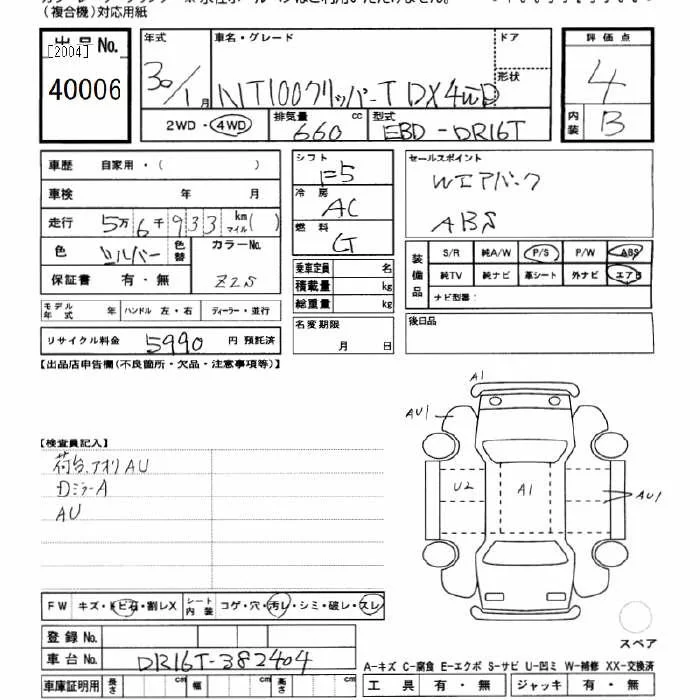 (複合機)対応用紙
出品No.
[2004]
40006
年式 車名・グレード ドア 形状
30/1月 NT100クリッパーT DX 4WD
2WD・4WD 排気量 660 cc 型式 EBD-DR16T
評価点
4
内装 B
車歴 自家用・( )
車検 年 月
走行 5万6千933 km マイル( )
色 シルバー 色替 カラーNo. Z2S
保証書 有・無
モデル年式 年 ハンドル 左・右 ディーラー・並行
リサイクル料金 5990 円 預託済
シフト F5
冷房 AC
燃料 G
乗車定員 名
積載量 kg
総重量 kg
名変期限
月 日
セールスポイント
Wエアバック
ABS
装備品
S/R 純A/W P/S P/W ABS
純TV 純ナビ 革シート 外ナビ エアB
ナビ型番:
後日品
【出品店申告欄(不良箇所・欠品・注意事項等)】
【検査員記入】
荷台、アオリAU
DミラーA
AU
A1
AU1
U2
A1
AU1
スペア
FW キズ・トビ石・割レX シート内装 コゲ・穴・汚レ・シミ・破レ・スレ
登録No.
車台No. DR16T-382404
車庫証明用 長さ cm 幅 cm 高さ cm
A-キズ C-腐食 E-エクボ S-サビ U-凹ミ W-補修 XX-交換済
工具 有・無 ジャッキ 有・無